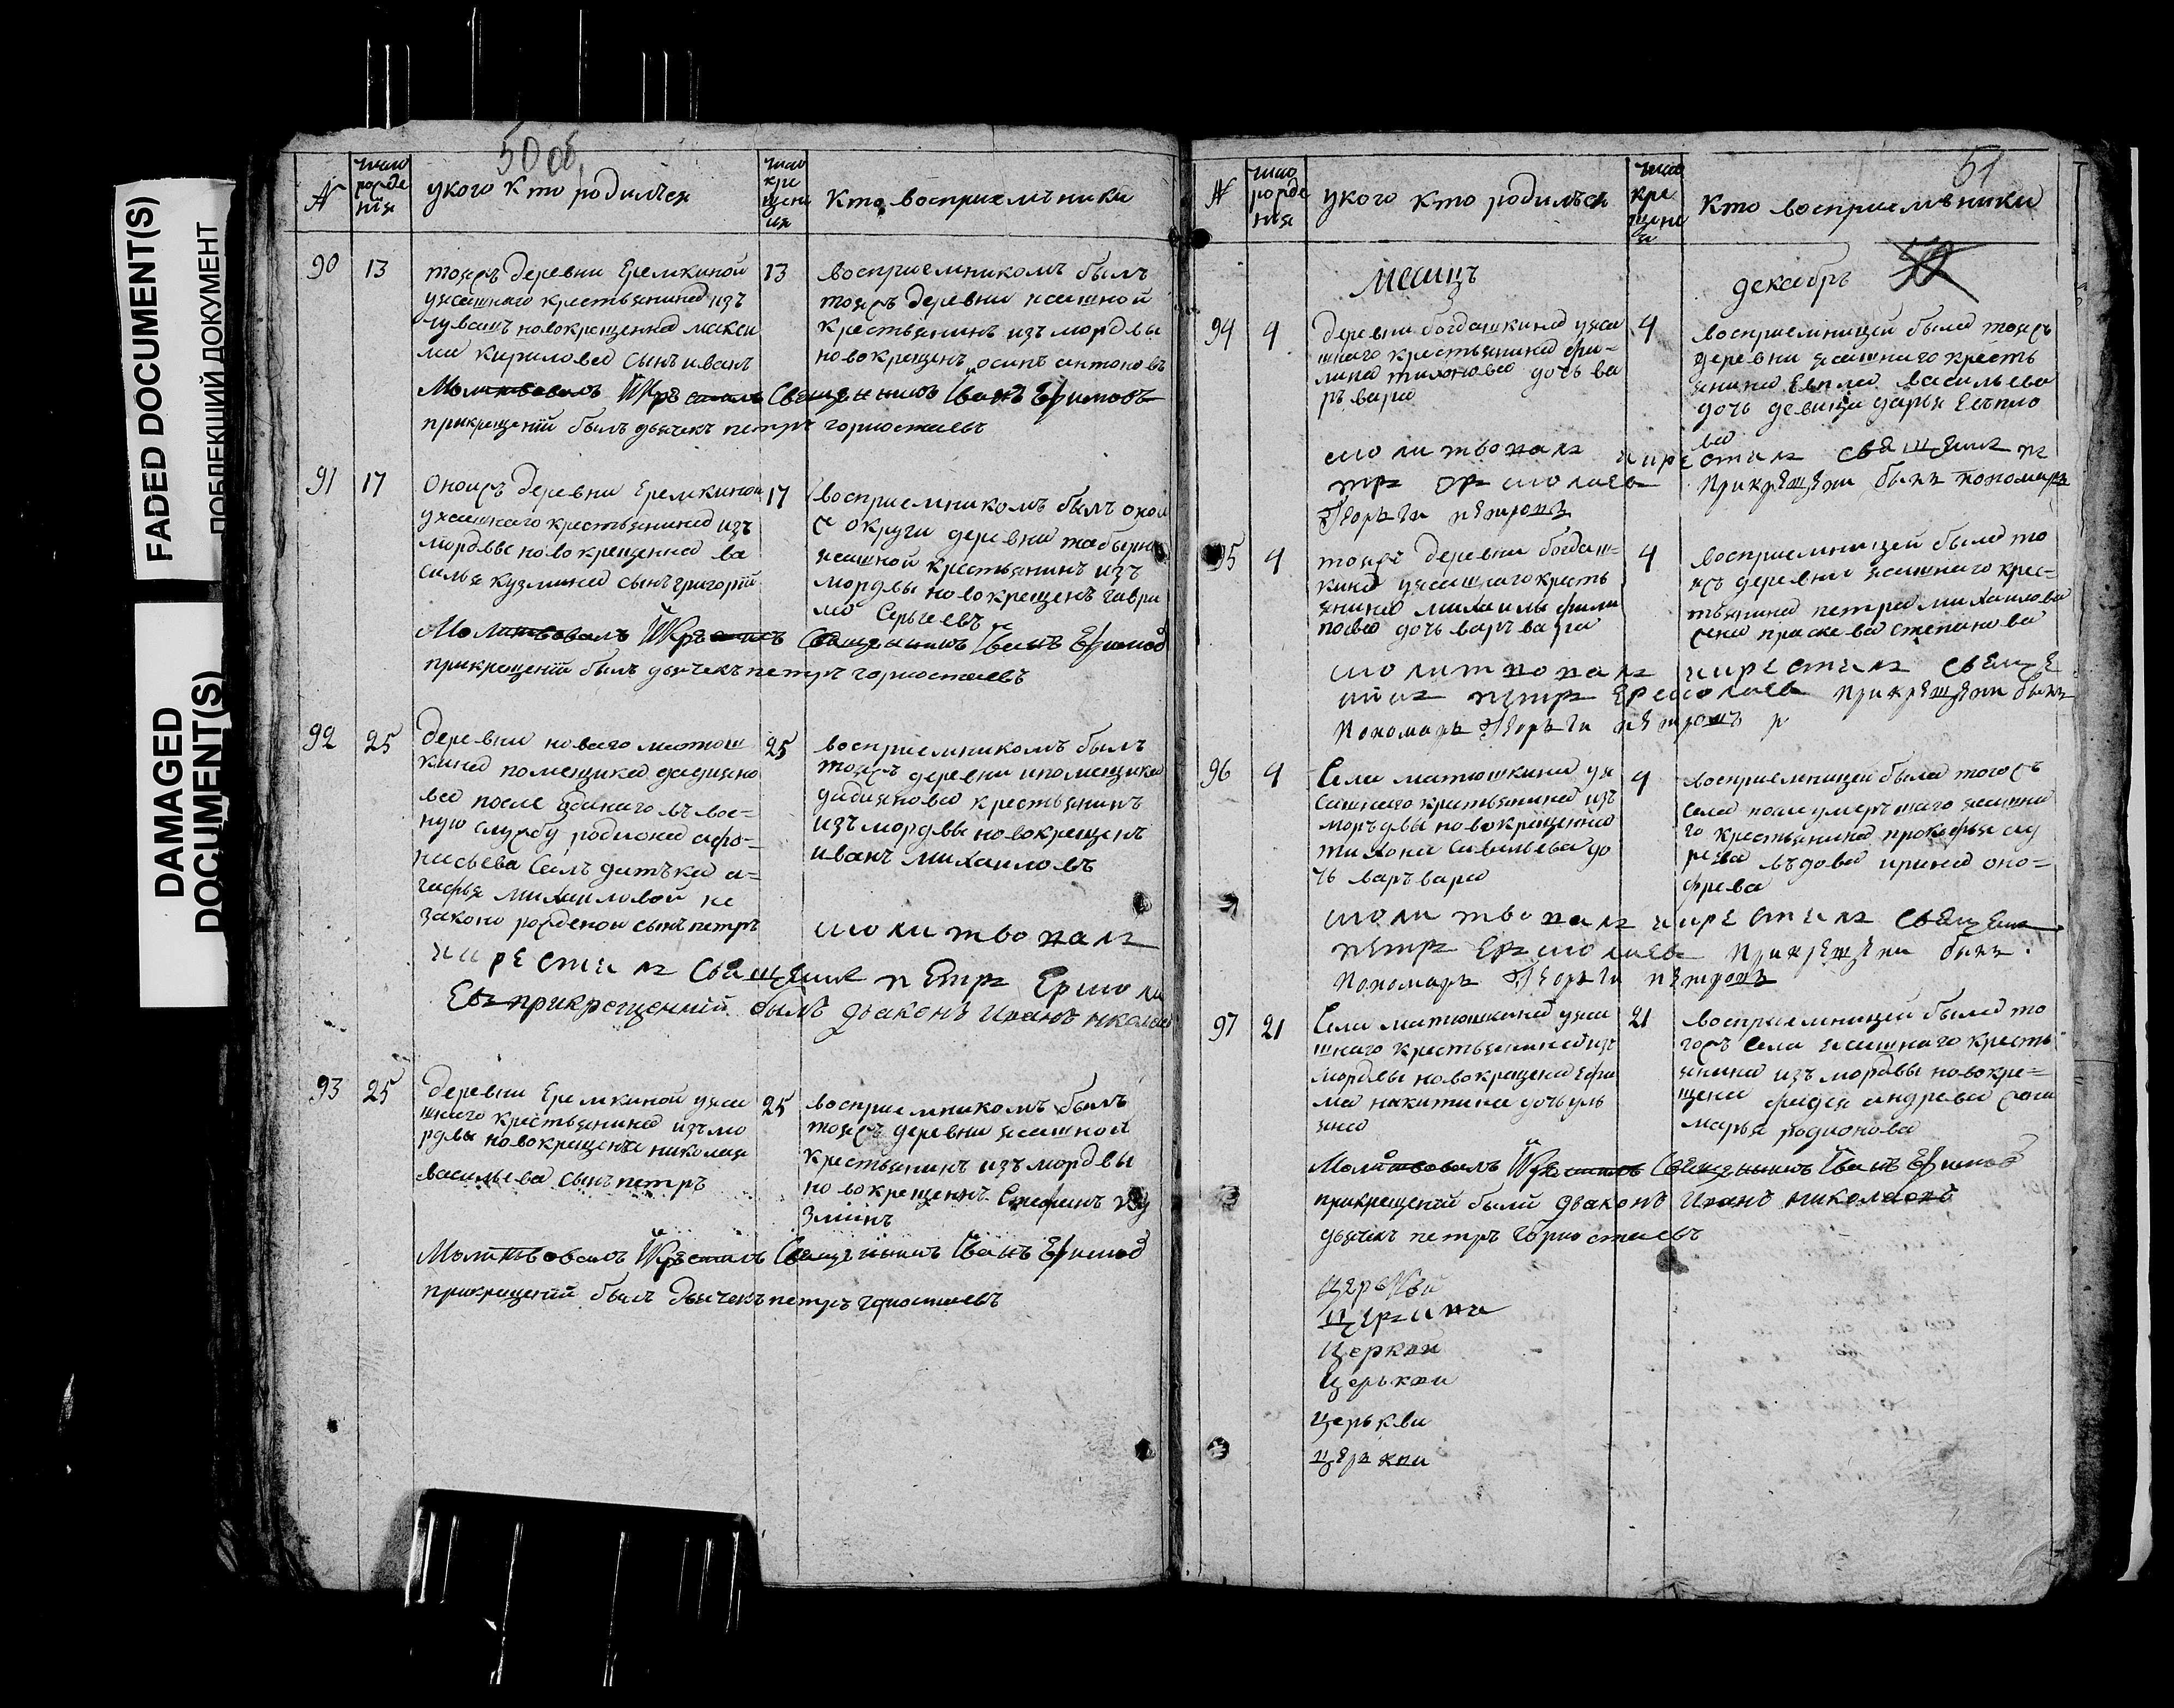 FADED DOCUMENT(S)
ПОБЛЕКШИЙ ДОКУМЕНТ
DAMAGED
DOCUMENT(S)
50 об.
№
число рожде нія
укого кто родилъся
число кре щени ия
кто восприемъники
90 13
тояжъ деревни Еремкиной
уясашнаго крестьянина изъ
чувашъ новокрещенна макси
ма кирилова сынъ иванъ
13
восприемникомъ былъ
тояжъ деревни ясашной
крестьянинъ изъ мордвы
новокрещенъ осипъ антоновъ
Молитвовалъ Икрестилъ Священникъ Іванъ Ефимовъ
прикрещеніи былъ дьячекъ петръ горностаевъ
91 17
Оноижъ деревни Еремкиной
уясашнаго крестьянина изъ
мордвы новокрещенна ва
силья кузмина сынъ григорій
17
восприемникомъ былъ оной
ж округи деревни
ясашной крестьянинъ изъ
мордвы новокрещенъ гаври
ла Сергеевъ
Молитвовалъ Икрестилъ Священникъ Іванъ Ефимовъ
прикрещеніи былъ дьячекъ петръ горностаевъ
92 25
деревни новаго матюш
кина помещика дадиано
ва после отданаго въ вое=
ную службу родиона афо=
насьева Салъдатъка а=
гафья михаиловой не
законо рожденои сынъ петръ
25
восприемникомъ былъ
тояжъ деревни и помещика
дадианова крестьянинъ
изъ мордвы новокрещенъ
иванъ михаиловъ
молитвовалъ
икрестилъ священикъ петръ Ермола
евъ прикрещенiи былъ дьаконъ Иванъ николаев
93 25
деревни Еремкиной уяса
шнаго крестьянина изъ мо
рдвы новокрещенъ николая
васильева сынъ петръ
25
восприемникомъ былъ
тояжъ деревни ясашной
крестьянинъ изъ мордвы
новокрещенъ Стефанъ ку
зминъ
Молитвовалъ Икрестилъ Священникъ Іванъ Ефимовъ
прикрещеній былъ дьячекъ петръ горностаевъ
51
№
число рожде нія
укого кто родилъся
число кре щени я
кто восприемъники
месицъ
декабрь
50
94 4
деревни богдашкина уяса
шнаго крестьянина фи=
липа тихонова дочь ва
ръвара
4
восприемницей была тояжъ
деревни ясашнаго кресть
янина Евпла васильева
дочь девица дарья Евъпло
ва
молитвовалъ икрестилъ священикъ пе
тръ Ермолаевъ прикрещени былъ пономарь
Георьги петровъ
95 4
тояжъ деревни богдаш=
кина уясашнаго кресть
янина михаилы фили
пова дочь варъвара
4
восприемницей была то
яжъ деревни ясашнаго крес=
тьянина петра михаилова
жена праскева степанова
молитвовалъ икрестилъ свяще
никъ петръ Ермолаевъ прикрещени былъ
Пономарь Георьги петровъ
96 4
Села матюшкина уя
сашнаго крестьянина изъ
моръдвы новокрещенна
тихона Савельева до
чь варъвара
4
восприемницей была тогожъ
села после умеръшаго ясашна
го крестьянина прокофья
въдова ирина оно=
фрева
молитвовалъ икрестилъ священикъ
петръ Ермолаевъ прикрещени былъ
Пономарь Георьги петровъ
97 21
Села матюшкина уяса
шнаго крестьянина изъ
мордвы новокрещена Ефи
ма никитина дочь уль
яна
21
восприемницей была то
гожъ Села ясашнаго кресть
янина изъ мордвы новокре=
щена фадея андреева жена
марья родионова
Молитвовалъ Икрестилъ Священникъ Іванъ Ефимовъ
прикрещеніи были дьаконъ Иванъ николаевъ
дьячекъ петръ горностаевъ
Церькви
Церкви
Церкви
Церькви
Церькви
Церкви